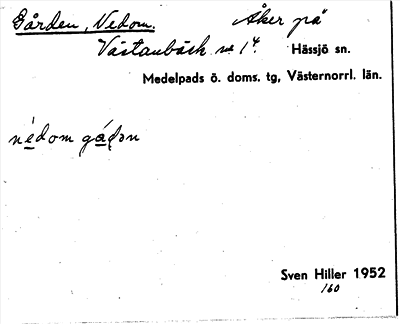 Gården, Nedom. Åker på
Västanbäck nr 1⁴. Hässjö sn.
Medelpads ö. doms. tg, Västernorrl. län.
nèdom gáḍən
Sven Hiller 1952
160